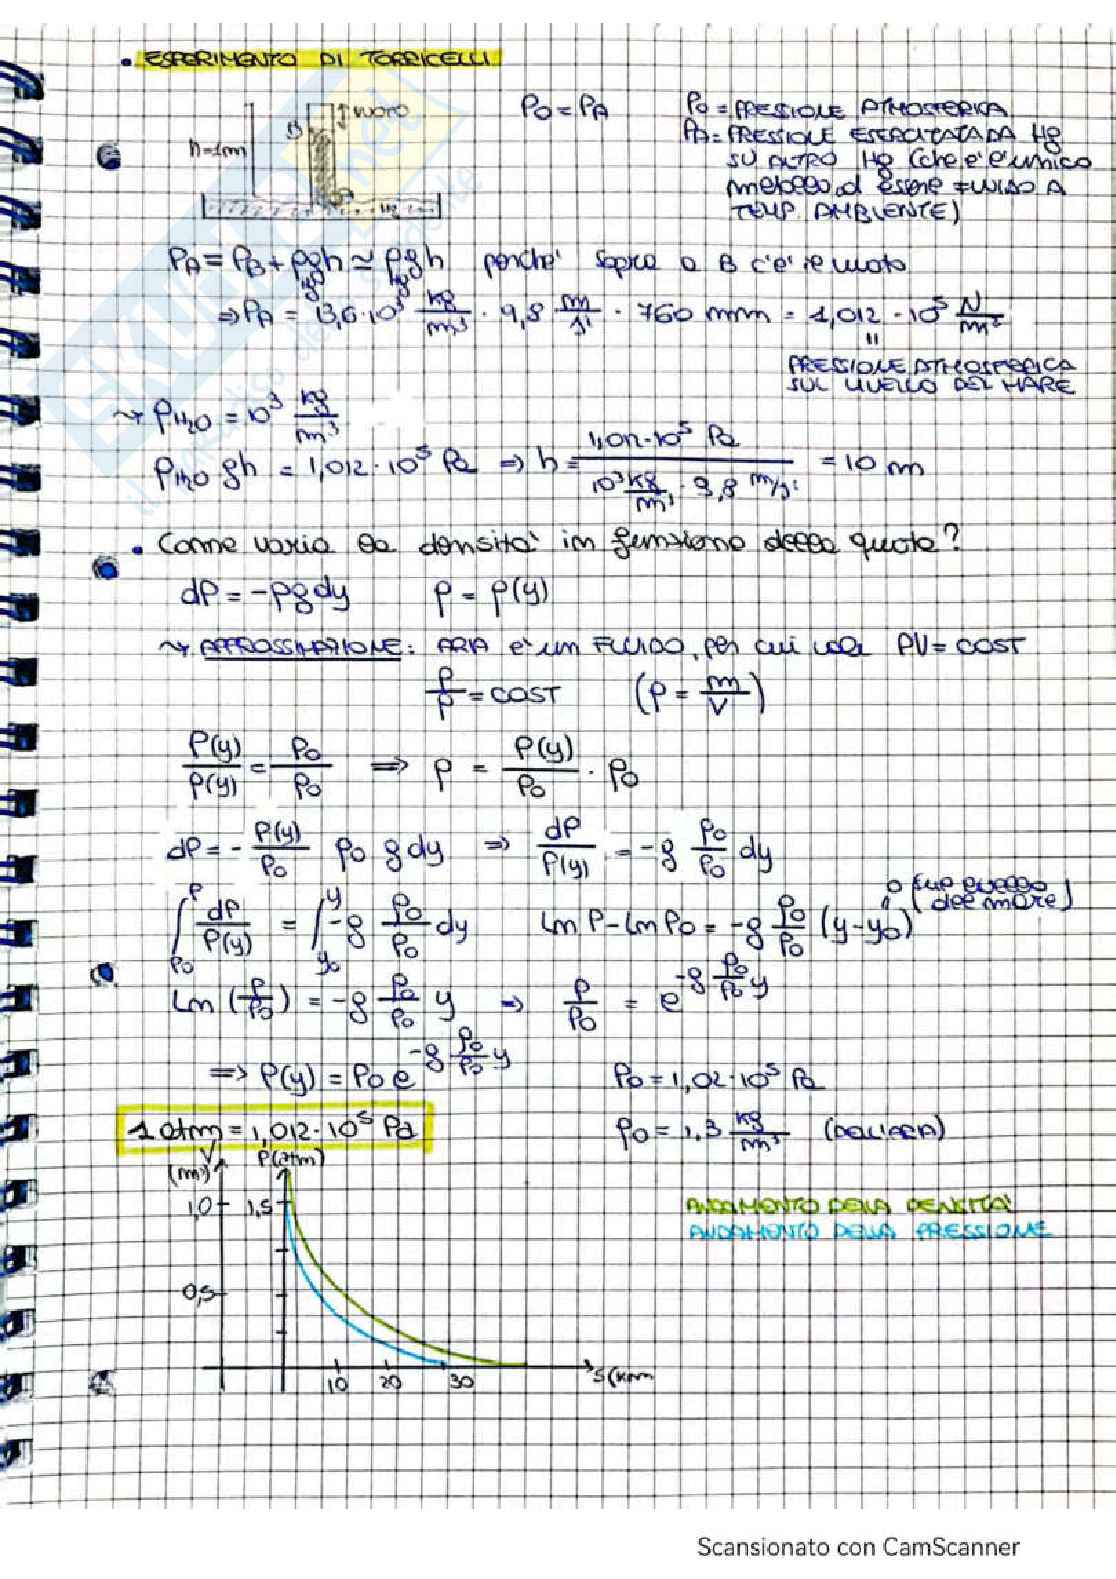 • ESPERIMENTO DI TORRICELLI
VUOTO
B
h=1m
P0 = PA
P0 = PRESSIONE ATMOSFERICA
PA = PRESSIONE ESERCITATA DA Hg
SU ALTRO Hg (che è l'unico
metallo ad essere FLUIDO A
TEMP. AMBIENTE)
PA = PB + ρgh ≃ ρgh perché sopra a B c'è il vuoto
⇒ PA = 13,6·10³ kg/m³ · 9,8 m/s² · 760 mm = 1,012 · 10⁵ N/m²
"
PRESSIONE ATMOSFERICA
SUL LIVELLO DEL MARE
↝ ρH2O = 10³ kg/m³
ρH2O gh = 1,012 · 10⁵ Pa ⇒ h = 1,012·10⁵ Pa / 10³ kg/m³ · 9,8 m/s² = 10 m
• Come varia la densità in funzione della quota?
dP = -ρgdy ρ = ρ(y)
↝ APPROSSIMAZIONE: ARIA è un FLUIDO, per cui vale PV = COST
P/ρ = COST (ρ = m/V)
P(y)/ρ(y) = P0/ρ0 ⇒ ρ = P(y)/P0 · ρ0
dP = - P(y)/P0 ρ0 g dy ⇒ dP/P(y) = -g ρ0/P0 dy
0 (sul livello
del mare)
∫P0^P dP/P(y) = ∫y0^y -g ρ0/P0 dy ln P - ln P0 = -g ρ0/P0 (y-y0)
ln (P/P0) = -g ρ0/P0 y ⇒ P/P0 = e^(-g ρ0/P0 y)
⇒ P(y) = P0 e^(-g ρ0/P0 y) P0 = 1,02·10⁵ Pa
1 atm = 1,012·10⁵ Pa
ρ0 = 1,3 kg/m³ (DELL'ARIA)
(m) P(atm)
1,0 1,5
ANDAMENTO DELLA DENSITÀ
ANDAMENTO DELLA PRESSIONE
0,5
10 20 30 S(km
SKUOLA.net
Scansionato con CamScanner